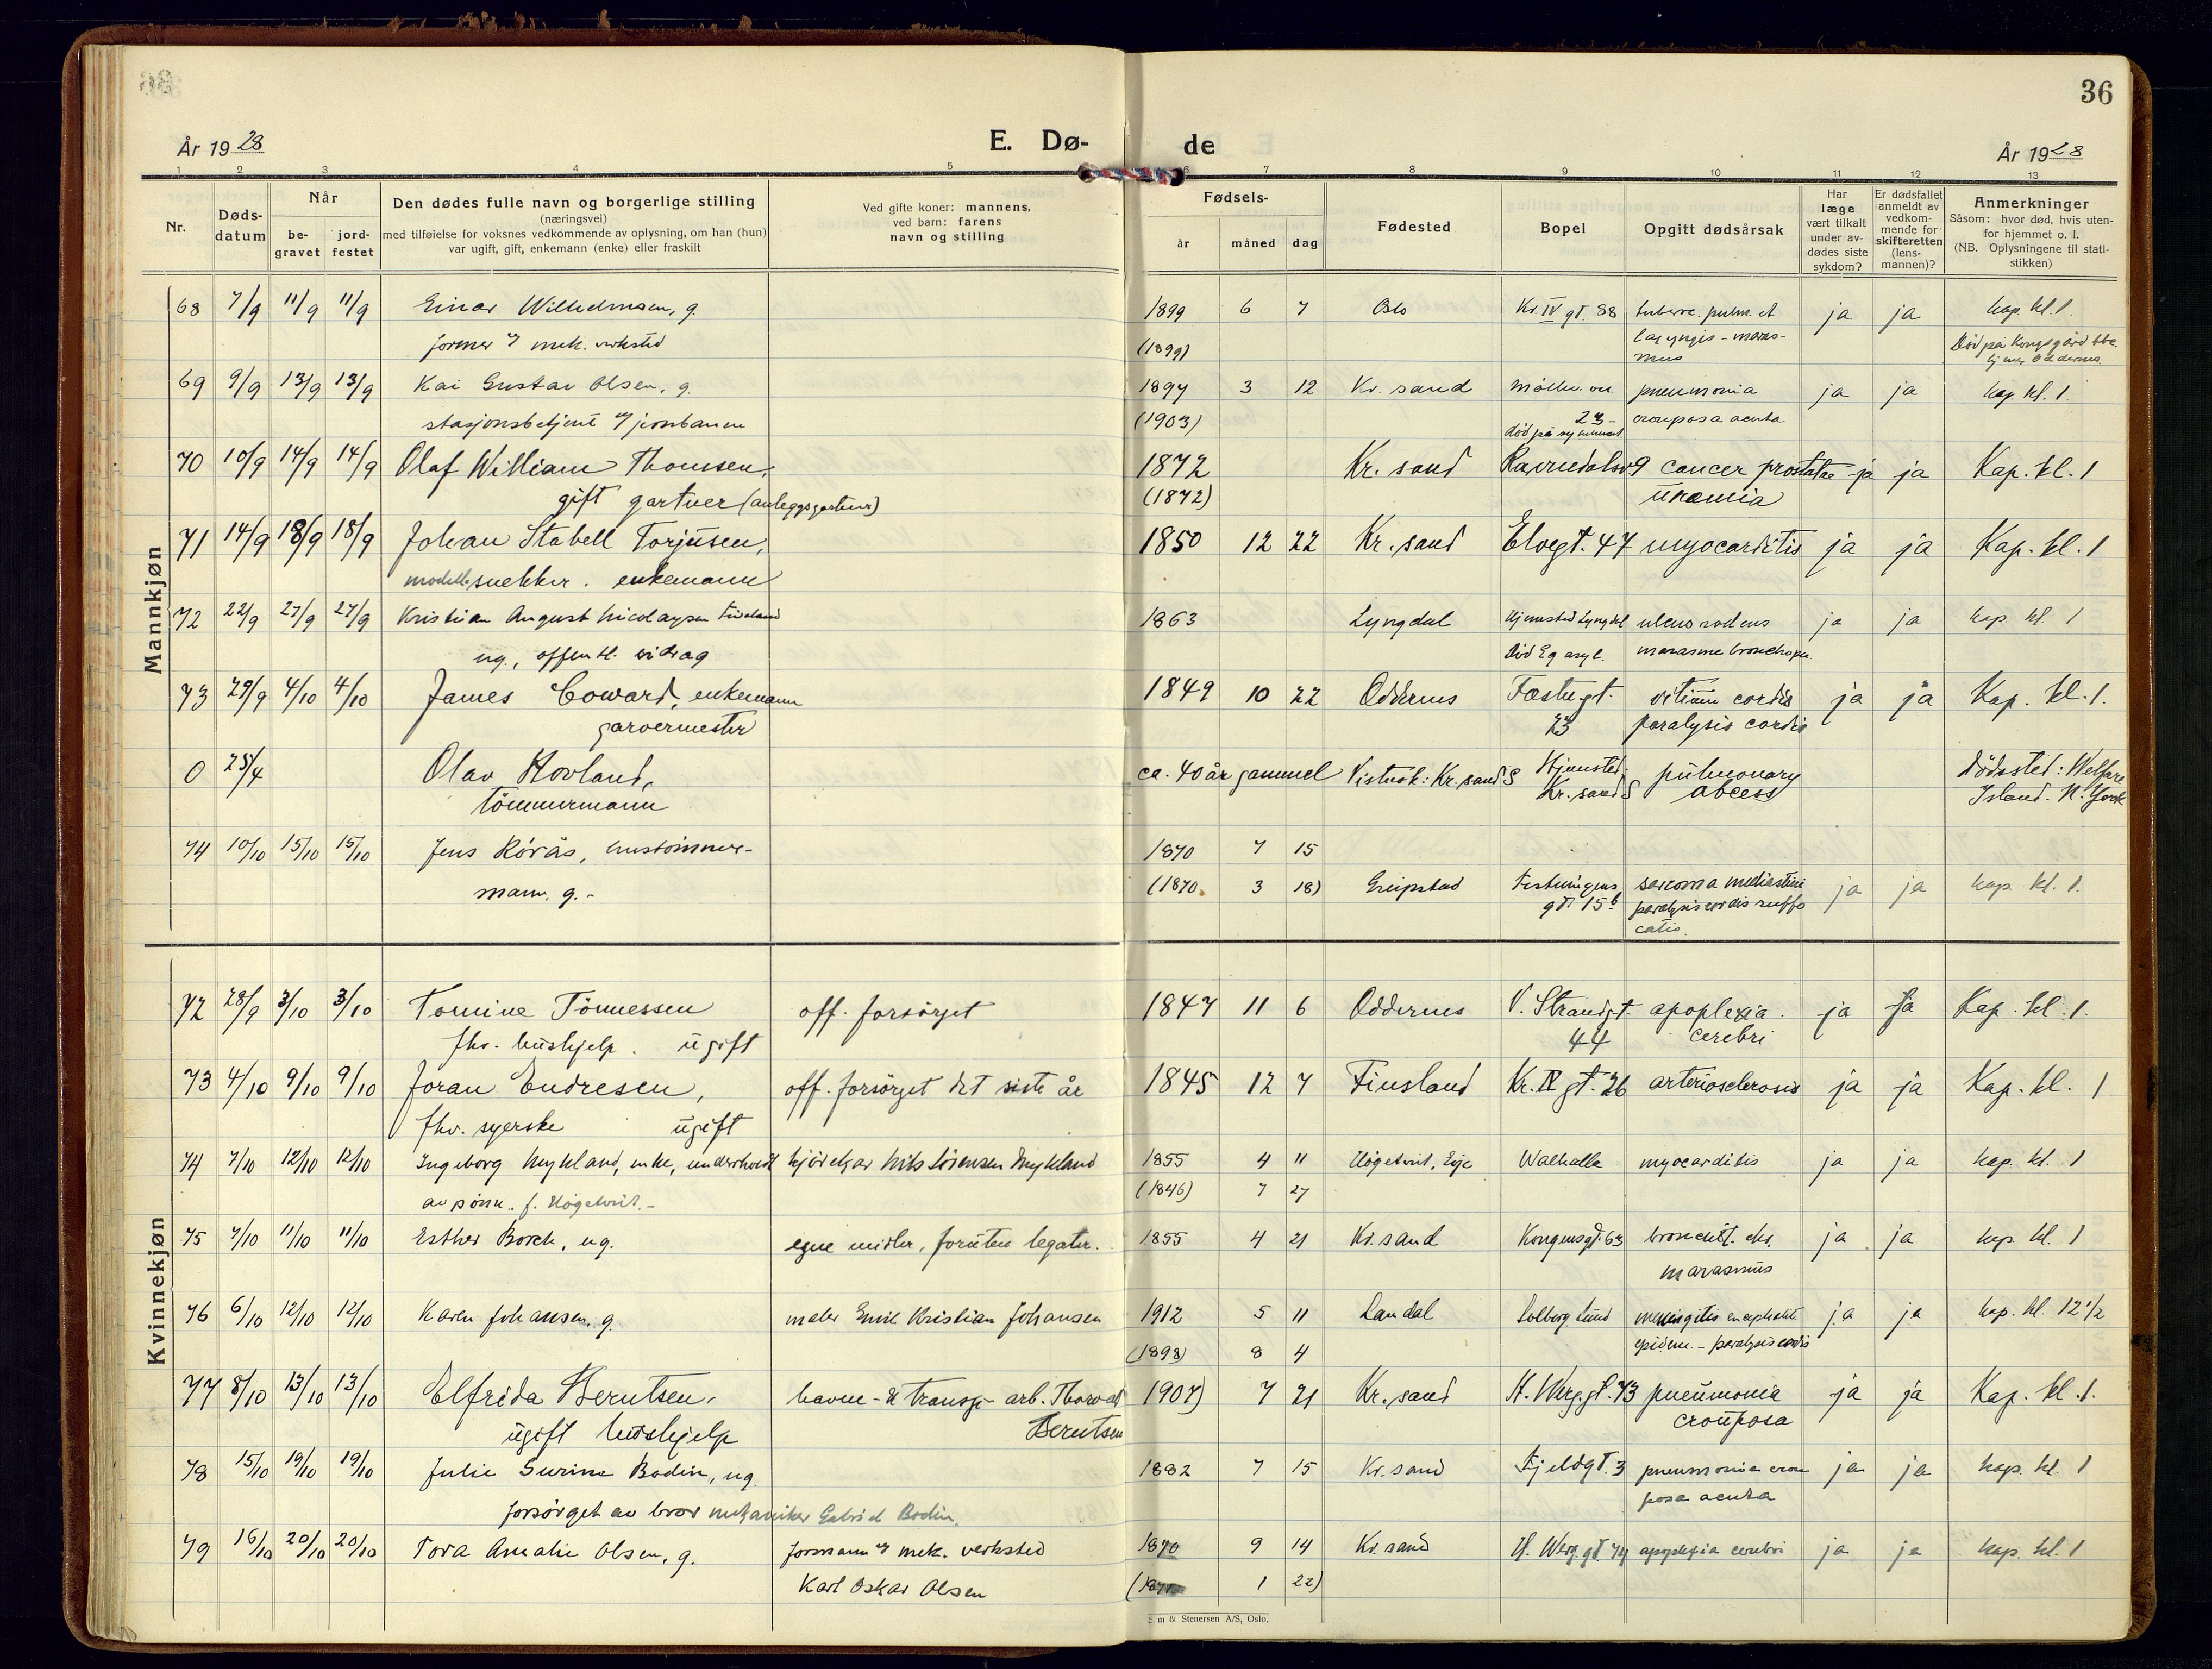 36
År 1928
E. Dø-
de
År 1928
1 2 3 4 5 6 7 8 9 10 11 12 13
Nr.
Døds-
datum
Når
be-
gravet
jord-
festet
Den dødes fulle navn og borgerlige stilling
(næringsvei)
med tilføielse for voksnes vedkommende av oplysning, om han (hun)
var ugift, gift, enkemann (enke) eller fraskilt
Ved gifte koner: mannens,
ved barn: farens
navn og stilling
Fødsels-
år måned dag
Fødested
Bopel
Opgitt dødsårsak
Har
læge
vært tilkalt
under av-
dødes siste
sykdom?
Er dødsfallet
anmeldt av
vedkom-
mende for
skifteretten
(lens-
mannen)?
Anmerkninger
Såsom: hvor død, hvis uten-
for hjemmet o. l.
(NB. Oplysningene til stati-
stikken)
Mannkjøn
68 7/9 11/9 11/9 Einar Wilhelmsen, g. 1899 6 7 Oslo Kr. IV gt. 88 tuberc. pulm. et ja ja kap. kl. 1.
former v/ mek. verksted (1899) laryngis - maras-
mus Død på Kongsgård
69 9/9 13/9 13/9 Kai Gustav Olsen, g. 1897 3 12 Kr. sand pneumonia ja ja kap. kl. 1.
stasjonsbetjent v/ jernbanen (1903) crouposa acuta
70 10/9 14/9 14/9 Olaf William Thomsen, 1872 Kr. sand Ravnedalsv 9 cancer prostatae ja ja Kap. kl. 1
gift gartner (anleggsgartner) (1872) uremia
71 14/9 18/9 18/9 Johan Stabell Torjusen, 1850 12 22 Kr. sand Elvegt. 47 myocarditis ja ja Kap. kl. 1
modellsnekker. enkemann
72 22/9 27/9 27/9 Kristian August Nicolaysen 1863 Lyngdal Hjemsted Lyngdal ulcus rodens ja ja kap. kl. 1
ug., offentl. bidrag Død Eg asyl. marasme bronchopn.
73 29/9 4/10 4/10 James Coward, enkemann 1849 10 22 Oddernes Festngt. vitium cordis ja ja Kap. kl. 1.
garvermester 23 paralysis cordis
0 25/4 Olav Hovland, ca. 40 år gammel Kr. sand S Hjemsted: pulmonary Dødssted: Welfare
tømmermann Kr. sand S abcess Island. N. York
74 10/10 15/10 15/10 Jens Rörås, hustömmer- 1870 7 15
mann, g. - (1870. 3 18) Greipstad Festnings sarcoma mediastini ja ja kap. kl. 1.
gt. 15 b paralysis cordis suffo
catio.
Kvinnekjøn
72 28/9 3/10 3/10 Tomine Tönnessen off. forsörget 1847 11 6 Oddernes V. Strandgt. apoplexia ja ja Kap. kl. 1.
fhv. hushjelp. ugift 44 cerebri
73 4/10 9/10 9/10 Joran Endresen, off. forsörget det siste år 1845 12 7 Finsland Kr. IV gt. 26 arteriosclerosis ja ja Kap. kl. 1
fhv. syerske ugift
74 7/10 12/10 12/10 Ingeborg Mykland, enke, underholdt kjörekar Nils Sörensen Mykland 1855 4 11 Högetveit, Evje Walhalla myocarditis ja ja kap. kl. 1
av sönn. f. Högetveit. - (1846) 7 27
75 7/10 11/10 11/10 Esther Borch, ug. egne midler, foruten legater. 1855 4 21 Kr. sand Kongensgt. 63 bronchit. chr. ja ja kap. kl. 1
marasmus
76 6/10 12/10 12/10 Karen Johansen, g. maler Emil Kristian Johansen 1912 5 11 Laudal Solberg Lund meningitis encephalit. ja ja kap. kl. 12 1/2
(1898) 8 4 epidem. - paralysis cordis
77 8/10 13/10 13/10 Elfrida Berntsen, havne- & transp- arb. Thorvald 1907) 7 21 Kr. sand H. Werg. gt. 73 pneumonia ja ja Kap. kl. 1.
ugift hushjelp Berntsen crouposa
78 15/10 19/10 19/10 Julie Surine Bodin, ug. 1882 7 15 Kr. sand Fjeldgt. 3 pneumonia crou ja ja kap. kl. 1
forsörget av bror mekaniker Gabriel Bodin. posa acuta
79 16/10 20/10 20/10 Tora Amalie Olsen, g. formann v/ mek. verksted 1870 9 14 Kr. sand H. Werg. gt. 74 apoplexia cerebri ja ja kap. kl. 1
Karl Oskar Olsen 1 22)
& Stenersen A/S, Oslo.